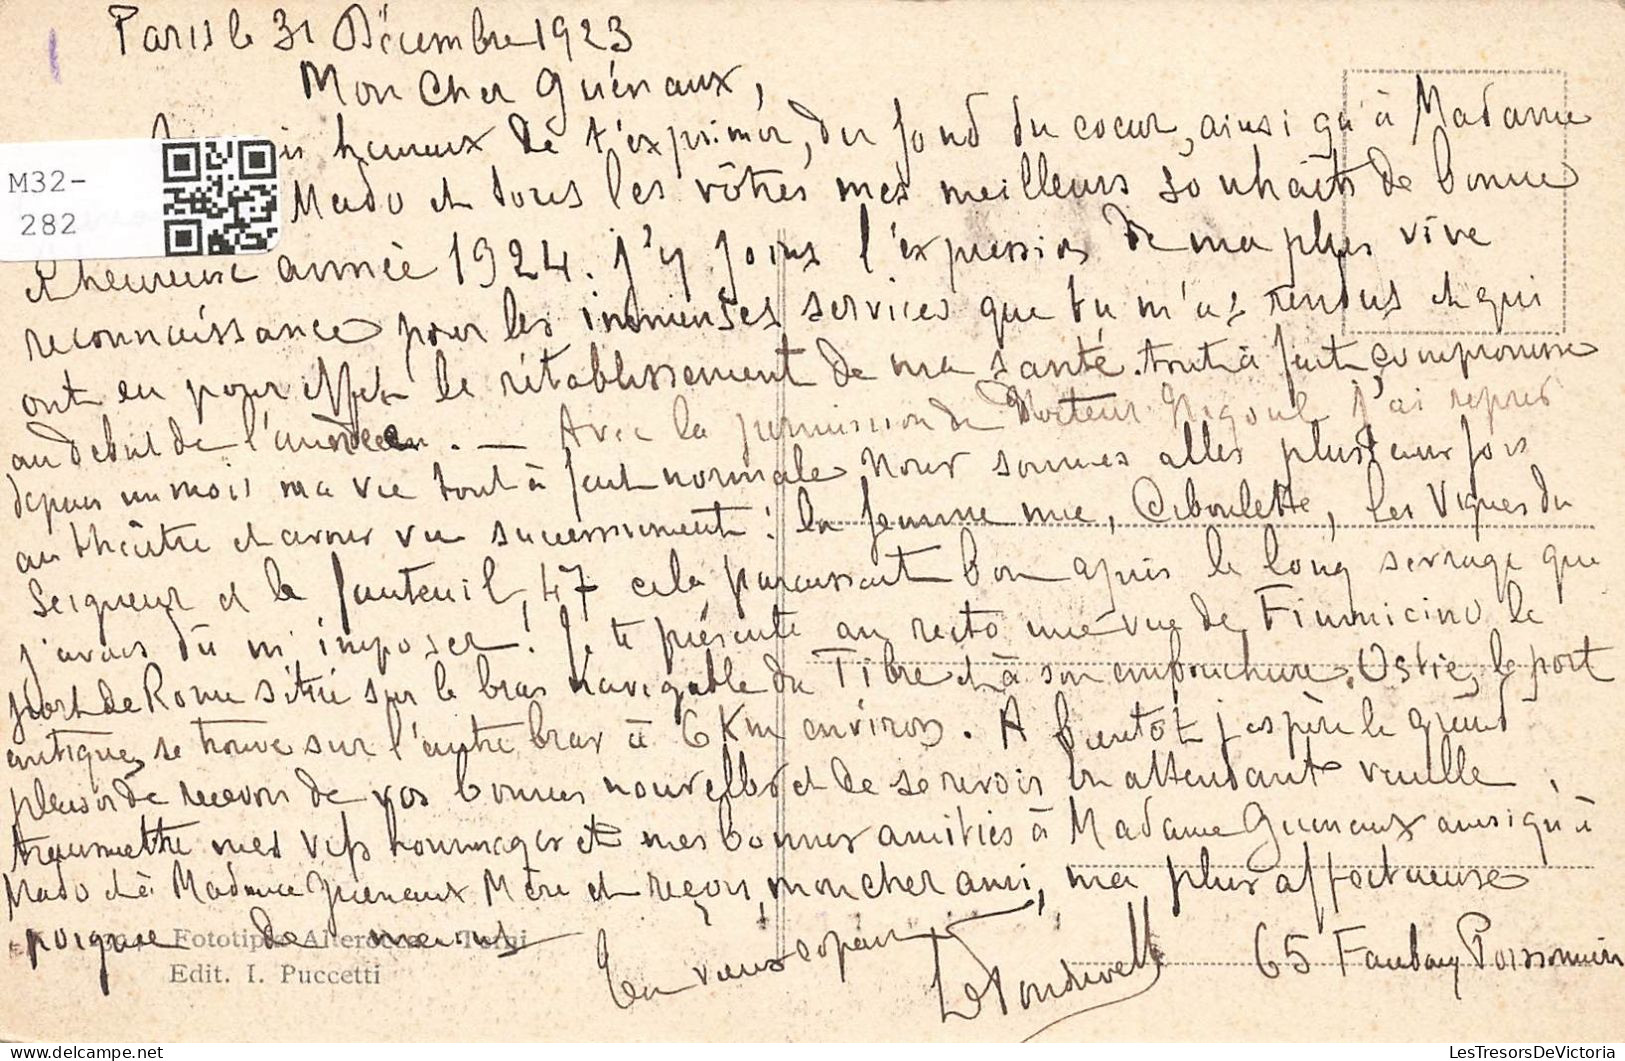 Paris le 31 Décembre 1923
Mon Cher Guénaux,
heureux de t'exprimer, du fond du coeur, ainsi qu'à Madame
M32-
282
Mado et tous les vôtres mes meilleurs souhaits de bonne
et heureuse année 1924. J'y joins l'expression de ma plus vive
reconnaissance pour les immenses services que tu m'as rendus et qui
ont eu pour effet le rétablissement de ma santé tout à fait compromise
au début de l'année. — Avec la permission de Docteur J'ai repris
depuis un mois ma vie tout à fait normale Nous sommes allés plusieurs fois
au théâtre et avons vu successivement : la femme nue, Ciboulette, Les Vignes du
Seigneur et le fauteuil, 47 cela paraissait bon après le long sevrage que
j'avais dû m'imposer ! Je te présente au recto une vue de Fiumicino le
port de Rome situé sur le bras navigable du Tibre et à son embouchure. Ostie, le port
antique, se trouve sur l'autre bras à 6 Km environ. A bientôt j'espère le grand
plaisir de recevoir de vos bonnes nouvelles et de se revoir En attendant veuille
transmettre mes vifs hommages et mes bonnes amitiés à Madame Guénaux ainsi qu'à
Mado et à Madame Guénaux Mère et reçois, mon cher ami, ma plus affectueuse
poignée de mains
Fototipia Alterocca - Terni
Edit. I. Puccetti
Ton vieux copain
65 Faubourg Poissonnière
LesTresorsDeVictoria